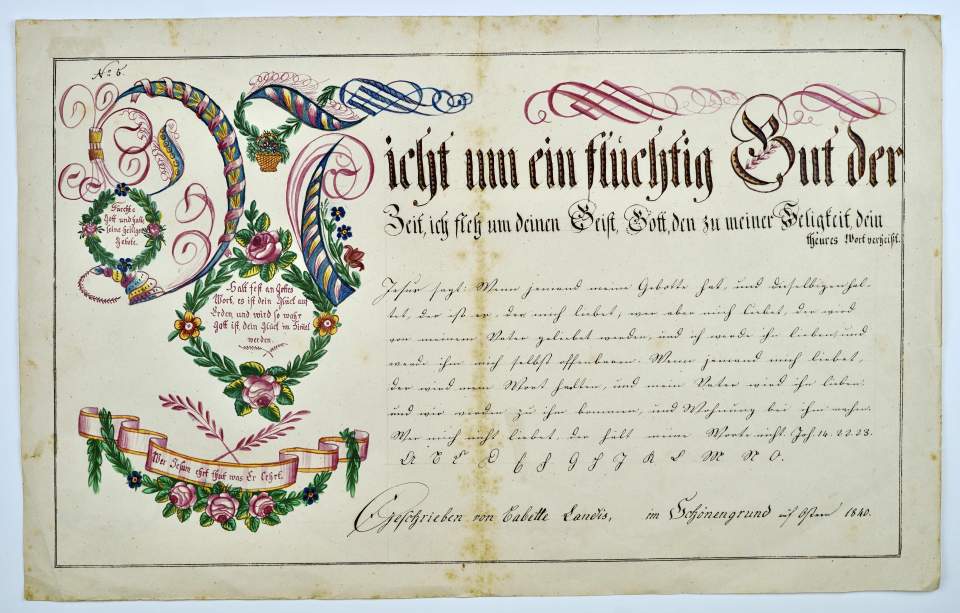 No 6.
Nicht um ein flüchtig Gut der
Zeit, ich fleh um deinen Geist, Gott, den zu meiner Seligkeit, dein
theures Wort verheißt.
Fürchte
Gott und halte
seine heiligen
Gebote.
Halt fest an Gottes
Wort, es ist dein Glück auf
Erden, und wird so wahr
Gott ist, dein Glück im Himel
werden.
Wer Jesum ehrt thut was Er lehrt.
Jesus sagt: Wenn jemand meine Gebotte hat, und dieselbigen hal-
tet, der ist er, der mich liebet, wer aber mich liebet, der wird
von meinem Vater geliebet werden, und ich werde ihn lieben und
werde ihm mich selbst offenbaren. Wenn jemand mich liebet,
der wird mein Wort halten, und mein Vater wird ihn lieben.
und wir werden zu ihm kommen, und Wohnung bei ihm machen.
Wer mich nicht liebet, der hält meine Worte nicht. Joh. 14. 22.23.
A B C D E F G H J K L M N O.
Geschrieben von Babette Landis, im Schönengrund auf Ostern 1840.